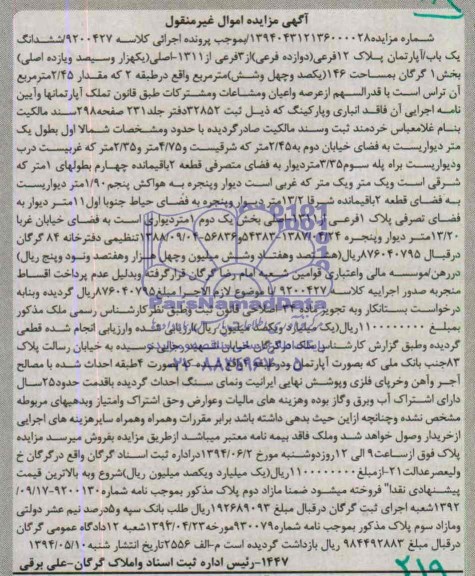 آگهی مزایده اموال غیرمنقول
شماره مزایده ۱۳۹۴۰۴۳۱۲۱۳۶۰۰۰۰۲۸/بموجب پرونده اجرائی کلاسه ۹۲۰۰۴۲۷/ششدانگ
یک باب/آپارتمان پلاک ۱۲فرعی(دوازده فرعی)از۳فرعی از۱۳۱۱-اصلی(یکهزار وسیصد ویازده اصلی)
بخش۱ گرگان بمساحت ۱۴۶(یکصد وچهل وشش)مترمربع واقع درطبقه ۲ که مقدار ۲/۴۵مترمربع
آن تراس است با قدرالسهم ازعرصه واعیان ومشاعات ومشترکات طبق قانون تملک آپارتمانها وآیین
نامه اجرایی آن فاقد انباری وپارکینگ که ذیل ثبت ۳۲۸۵۲دفتر جلد۲۳۱ صفحه۲۹۸سند مالکیت
بنام غلامعباس خردمند ثبت وسند مالکیت صادرگردیده با حدود ومشخصات شمالا اول بطول یک
متر دیواریست به فضای خیابان دوم به۲/۴۵متر که شرقیست و۴/۷۵متر و۲/۳۵متر که غربیست درب
ودیواریست براه پله سوم۳/۳۵متردیوار به فضای متصرفی قطعه ۲باقیمانده چهارم بطولهای ۱متر که
شرقی است ویک متر ویک متر که غربی است دیوار وپنجره به هواکش پنجم۱/۹۰متر دیواریست
به فضای قطعه ۲باقیمانده شرقا ۱۳/۲۰متر دیوار وپنجره به فضای حیاط جنوبا اول۱۱متر دیوار به
فضای تصرفی پلاک ۱فرعی از۱۳۱۱اصلی بخش یک دوم ۱متردیواری است به فضای خیابان غربا
۱۳/۲۰متر دیوار وپنجره تنظیمی دفترخانه ۸۴ گرگان
درقبال ۸۷۶۰۴۰۷۹۵ریال(هشتصد وهفتاد وشش میلیون وچهل هزار وهفتصد ونود وپنج ریال)
دررهن/موسسه مالی واعتباری قوامین شعبه امام رضا گرگان قرارگرفته وبدلیل عدم پرداخت اقساط
منجربه صدور اجراییه کلاسه ۹۲۰۰۴۲۷ با موضوع لازم الاجرا مبلغ۸۷۶۰۴۰۷۹۵ریال گردیده وبنابه
درخواست بستانکار وبه تجویز ماده ۳۴ اصلاحی قانون ثبت وطبق نظرکارشناس رسمی ملک مذکور
بمبلغ ۱۱۰۰۰۰۰۰۰۰ریال(یک میلیارد ویکصد میلیون ریال)ارزیابی شده وارزیابی انجام شده قطعی
گردیده وطبق گزارش کارشناس ملک درگرگان خیابان شهید رجایی نرسیده به خیابان رسالت پلاک
۸۳جنب بانک ملی که بصورت آپارتمان ودوطبقه واقع شده که بصورت ۴طبقه احداث شده با مصالح
آجر وآهن وخرپای فلزی وپوشش نهایی ایرانیت ونمای سنگ احداث گردیده باقدمت حدود۲۵سال
دارای اشتراک آب وبرق وگاز بوده وهزینه های مالیات وعوارض وحق اشتراک وامتیاز وبدهیهای مربوطه
مشخص نشده وچنانچه ازاین حیث بدهی داشته باشد برابر مقررات وهمراه وهمراه سایرهزینه های اجرایی
ازخریدار وصول خواهد شد وملک فاقد بیمه نامه معتبر میباشد ازطریق مزایده بفروش میرسد مزایده
پلاک فوق ازساعت۹ الی ۱۲روزدوشنبه مورخ ۱۳۹۴/۰۶/۲دراداره ثبت اسناد گرگان واقع درگرگان خ
ولیعصرعدالت۲۱-ازمبلغ۱۱۰۰۰۰۰۰۰۰ریال(یک میلیارد ویکصد میلیون ریال)شروع وبه بالاترین قیمت
پیشنهادی نقدا" فروخته میشود ضمنا مازاد دوم پلاک مذکور بموجب نامه شماره ۹۲۰۰۱۳۰-۰۹/۱۷/
۱۳۹۲شعبه اجرای ثبت گرگان درقبال مبلغ ۱۹۲۶۸۹۰۹۳ریال طلب بانک سپه و۵درصد نیم عشر دولتی
ومازاد سوم پلاک مذکور بموجب نامه شماره۹۳۰۰۷۹مورخه۱۳۹۳/۰۴/۲۳شعبه ۱۲دادگاه عمومی گرگان
درقبال مبلغ ۹۸۴۴۹۲۸۸۳ ریال بازداشت گردیده است م-الف ۲۵۵۶تاریخ انتشار شنبه ۱۳۹۴/۰۵/۱۰
۱۴۴۷-رئیس اداره ثبت اسناد واملاک گرگان-علی برقی
ParsNamadData
۰۲۱-۸۸۳۴۹۶۷۰
۲۱۹